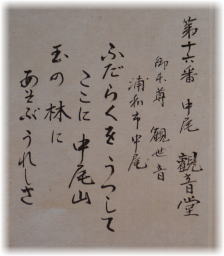 第十六番 中尾 観音堂
御本尊 観世音
浦和市中尾
ふだらくをうつして
ここに中尾山
玉の林に
あそぶうれしさ